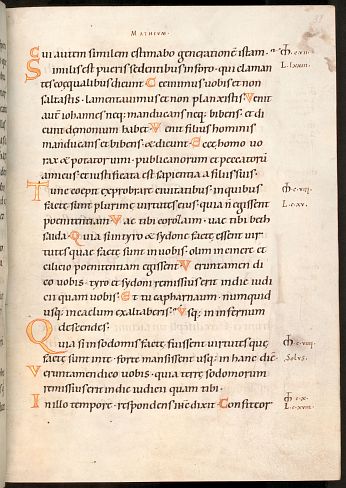 MATHEVM.
Cui autem similem estimabo generationē istam.
Similis est pueris sedentibus in foro. qui claman
tes coequalibus dicunt. Cecinimus uobis et non
saltastis. lamentauimus et non planxistis. Venit
autē iohannes neq; manducans neq; bibens. et di
cunt demonium habet. Venit filius hominis
manducans et bibens. & dicunt. Ecce homo uo
rax & potator uini. publicanorum et peccatorū
amicus et iustificata est sapientia a filiis suis.
Tunc coepit exprobrare ciuitatibus. in quibus
factę sunt plurimę uirtutes eius. quia n̄ egissent
poenitentiam. Vae tibi corozaim. uae tibi beth
saida. Quia si in tyro & sydone factę essent uir
tutes quae factę sunt in uobis. olim in cinere et
cilicio poenitentiam egissent. Veruntamen di
co uobis. tyro et sydoni remissius erit in die iudi
cii quam uobis. Et tu capharnaum. numquid
usq; in caelum exaltaberis? Vsq; in infernum
descendes.
Quia si in sodomis factę fuissent uirtutes quę
factę sunt in te. forte mansissent usq; in hanc diē
Veruntamen dico uobis. quia terrę sodomorum
remissius erit in die iudicii quam tibi.
In illo tempore. respondens ihc̄ dixit. Confiteor
L. lxxiii.
M̄. c. viii.
L. c. xv.
M̄. c. viiii.
Solus.
M̄. c. x.
L. c. xviiii.